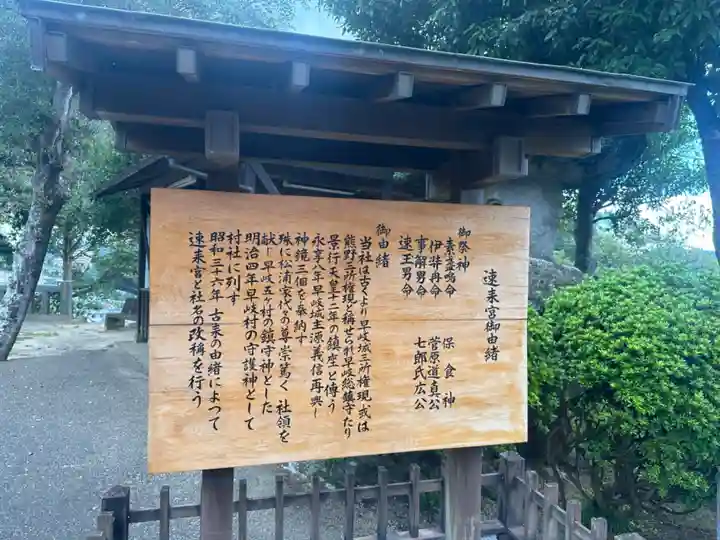 速来宮御由緒
御祭神
素盞嗚命 保食神
伊弉冉命 菅原道真公
事解男命 七郎氏広公
速玉男命
御由緒
当社は古くより早岐城三所権現或は
熊野三所権現と称せられ早岐総鎮守たり
景行天皇十二年の鎮座と伝う
永享八年早岐城主源義信再興し
神鏡三個を奉納す
殊に松浦家代々の尊崇篤く社領を
献じ早岐五ヶ村の鎮守神とした
明治四年早岐村の守護神として
村社に列す
昭和二十六年 古来の由緒によつて
速来宮と社名の改称を行う